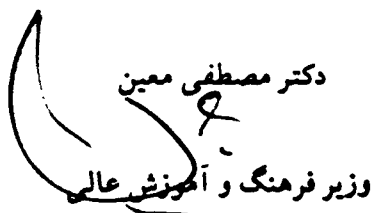 دکتر مصطفی معین
وزیر فرهنگ و آموزش عالی